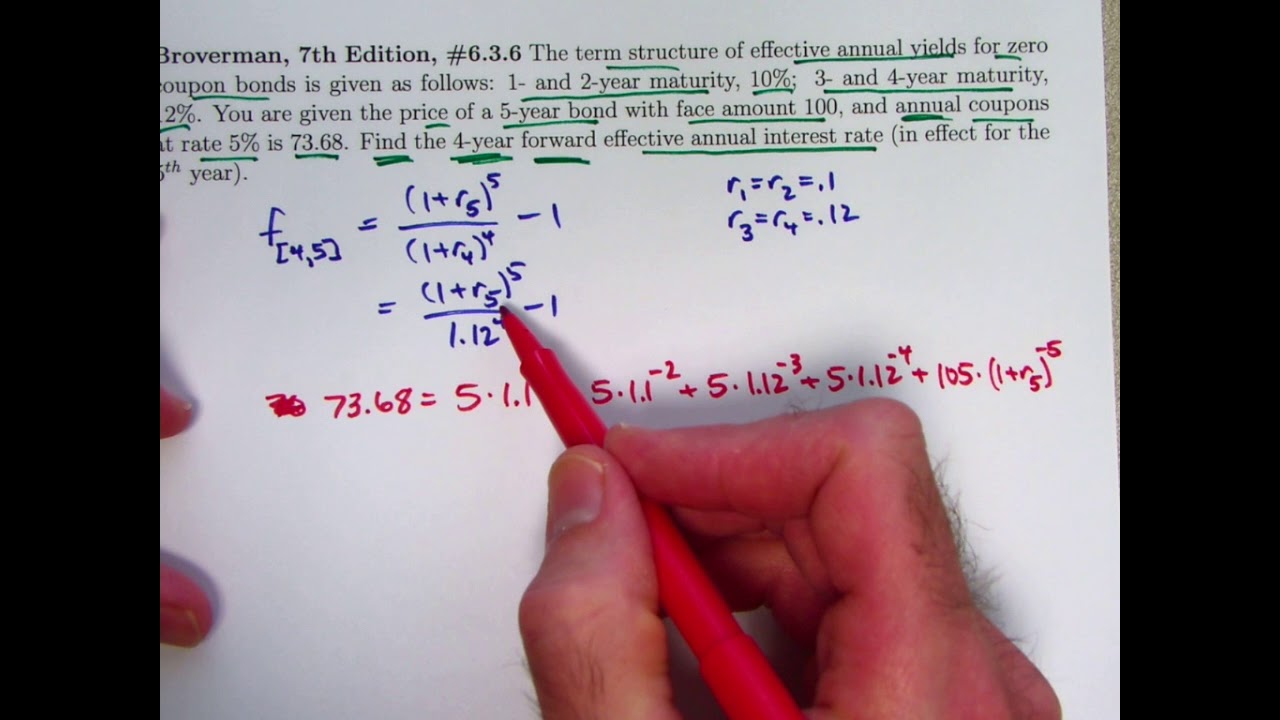 Broverman, 7th Edition, #6.3.6 The term structure of effective annual yields for zero
coupon bonds is given as follows: 1- and 2-year maturity, 10%; 3- and 4-year maturity,
12%. You are given the price of a 5-year bond with face amount 100, and annual coupons
at rate 5% is 73.68. Find the 4-year forward effective annual interest rate (in effect for the
5th year).
f[4,5] = (1+r5)^5 / (1+r4)^4 - 1
r1 = r2 = .1
r3 = r4 = .12
= (1+r5)^5 / 1.12^4 - 1
73.68 = 5·1.1 5·1.1^-2 + 5·1.12^-3 + 5·1.12^-4 + 105·(1+r5)^-5